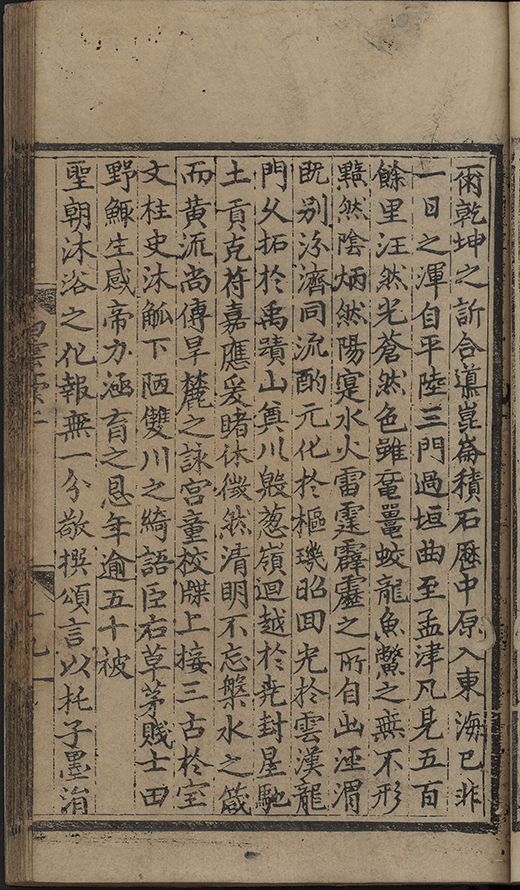 雨乾坤之訢合導崑崙積石歷中原入東海已非
一日之渾自平陸三門過垣曲至孟津凡見五百
餘里汪然光蒼然色雖黿鼉蛟龍魚鱉之無不形
黯然陰炳然陽寔水火雷霆霹靂之所自出涇渭
既別汾濟同流酌元化於樞璣昭回光於雲漢龍
門乆拓於禹蹟山奠川毀葱嶺迴越於堯封星馳
土貢克符嘉應爰睹休徵然清明不忘槃水之箴
而黃流尚傳旱麓之詠宮童校牒上接三古於室
文柱史沐觚下陋雙川之綺語臣右草茅賤士田
野鯫生感帝力涵育之恩年逾五十被
聖朝沐浴之化報無一分敬撰頌言以托子墨消
白雲
十九